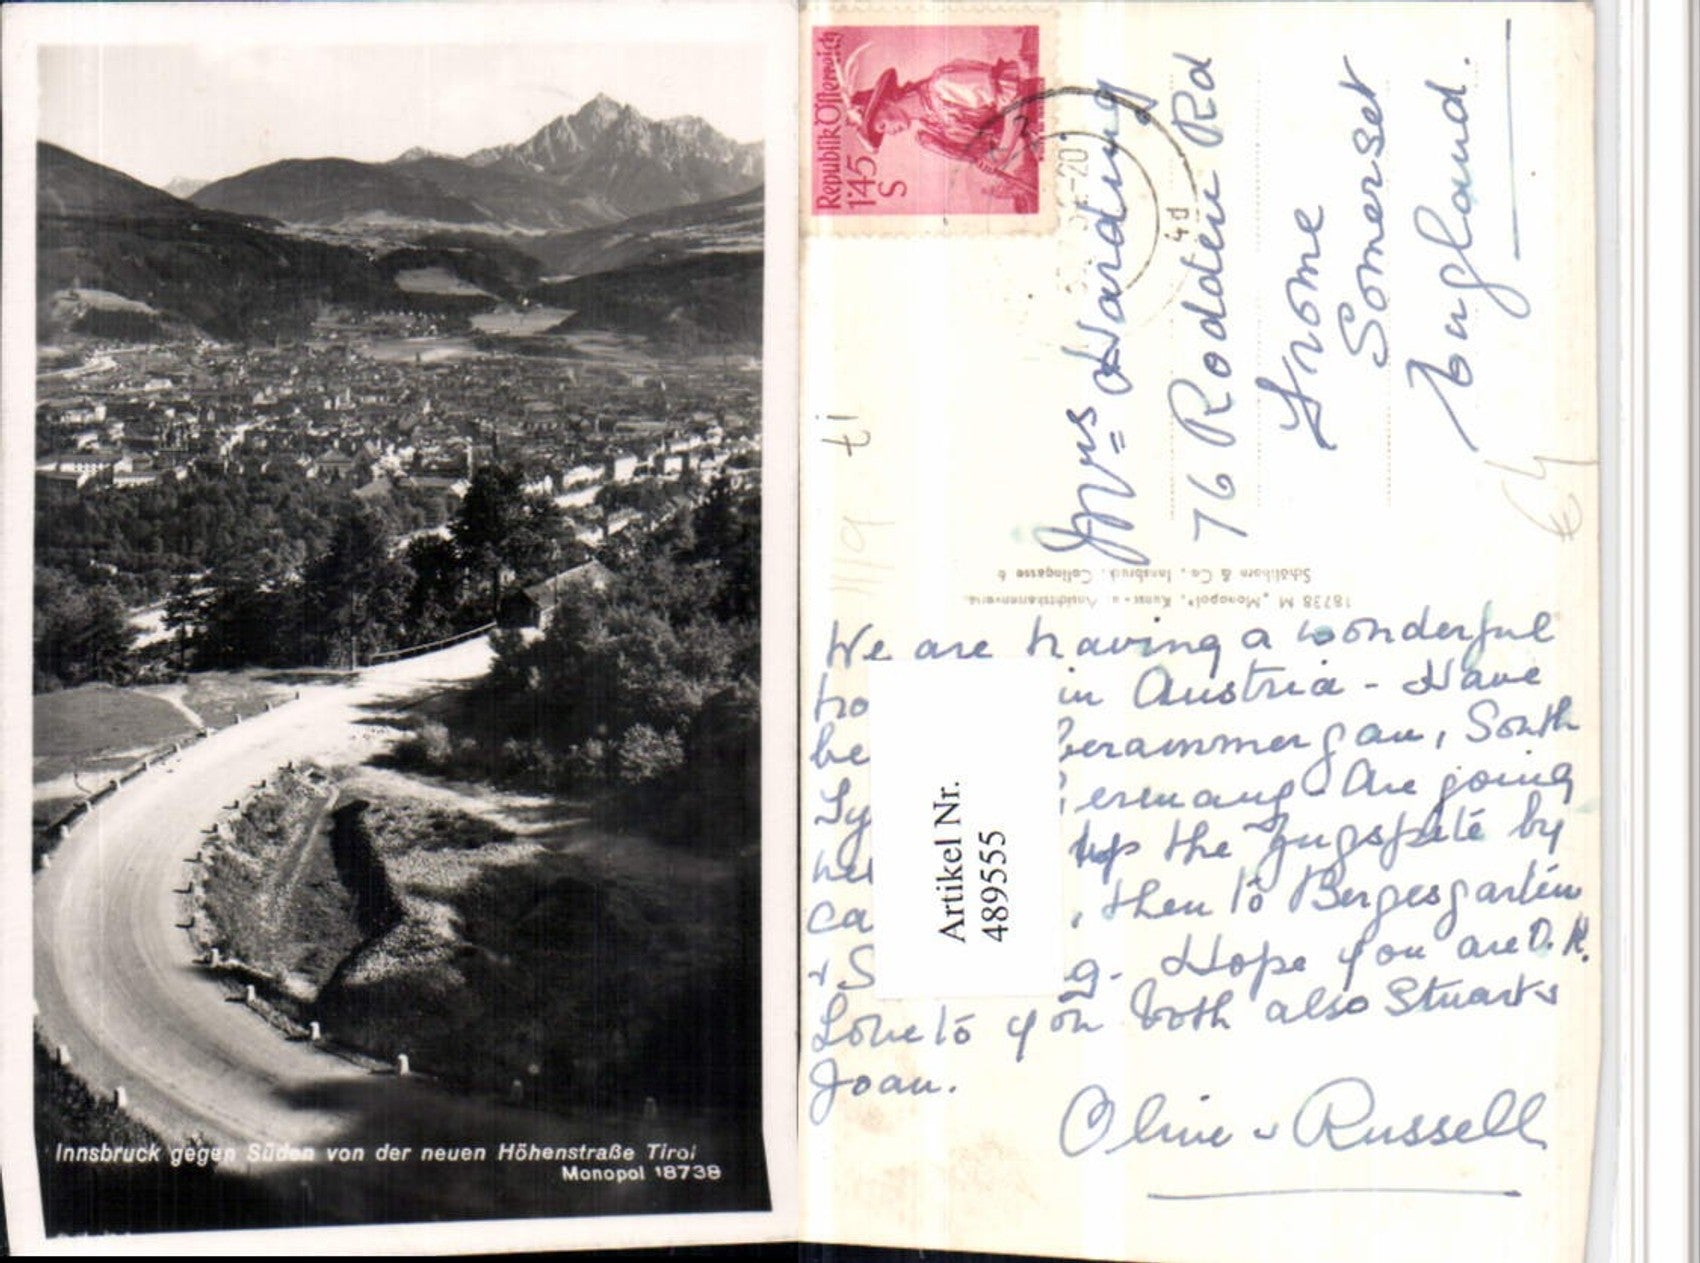 Innsbruck gegen Süden von der neuen Höhenstraße Tirol
Monopol 18738
Republik Österreich
1'45
S
Mrs Harding
76 Rodden Rd
Frome
Somerset
England.
4d
ti
18738 M „Monopol", Kunst- u. Ansichtskartenverla
Schöllhorn & Co., Innsbruck, Colingasse 6
We are having a wonderful
in Austria - Have
be berammergau, South
Ty Are going
up the Zugspite by
ca , then to Bergesgarten
+ S g. Hope you are O.K.
Love to you both also Stuart &
Joan.
Olive & Russell
Artikel Nr.
489555